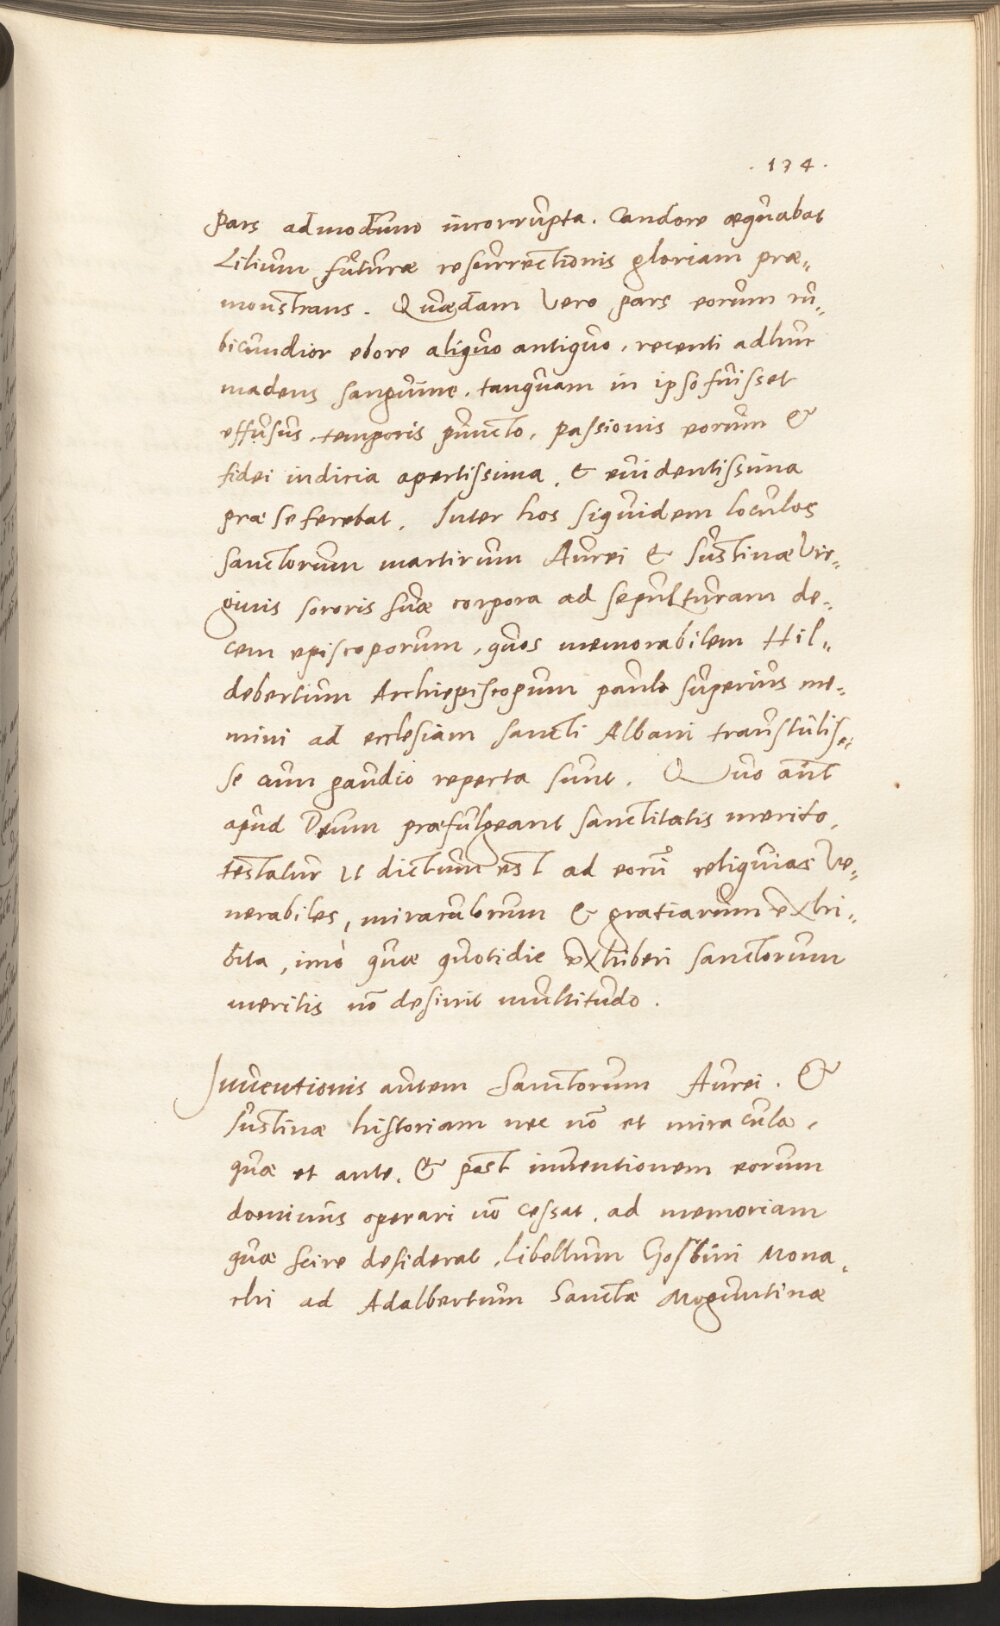 . 134 .
Pars admodum incorrupta. Candore æquabat
Lilium futuræ resurrectionis gloriam præ„
monstrans. Quædam vero pars eorum ru„
bicundior ebore aliquo antiquo, recenti adhuc
madens sanguine, tanquam in ipso fuisset
effusus temporis puncto, passionis eorum &
fidei indicia apertissima, & euidentissima
præ se ferebat. Inter hos siquidem loculos
sanctorum martirum Aurei & Iustinæ Vir„
ginis sororis suæ corpora ad sepulturam de„
cem episcoporum, quos memorabilem Hil„
debertum Archiepiscopum paulo superius me„
mini ad ecclesiam sancti Albani transtulis„
se cum gaudio reperta sunt. Quo aūt
apud Deum præfulgeant sanctitatis merito,
testatur ut dictum est ad eorū reliquias Ve„
nerabiles, miraculorum & gratiarum exhi„
bita, imò quæ quotidie exhiberi sanctorum
meritis nō desinit multitudo.
Inuentionis autem Sanctorum Aurei. &
Iustinæ historiam nec nō et miracula,
quæ et ante, & post inuentionem eorum
dominus operari nō cessat, ad memoriam
quæ scire desiderat, libellum Gosbini Mona„
chi ad Adalbertum Sanctæ Moguntinæ